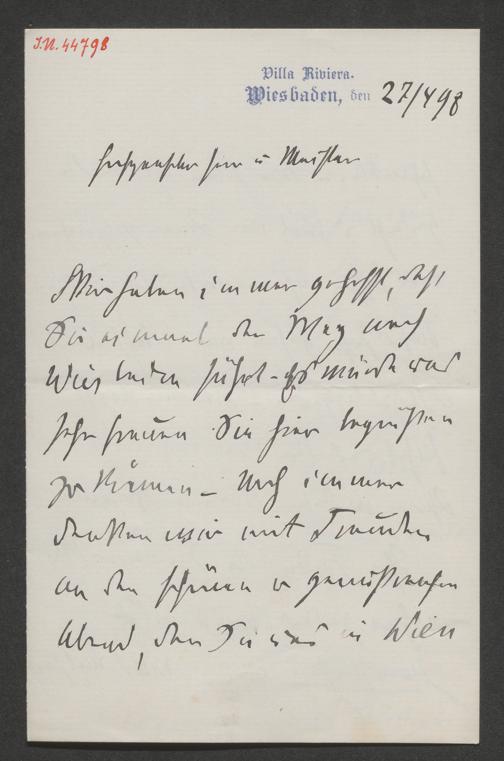 I.N. 44798
Villa Riviera.
Wiesbaden, den 27/4 98
Hochgeehrter Herr u Meister
Wir haben immer gehofft, daß
Sie einmal der Weg nach
Wiesbaden führt – Es würde uns
sehr freuen Sie hier begrüßen
zu können – Noch immer
denken wir mit Freuden
an den schönen u genußreichen
Abend, den Sie uns in Wien